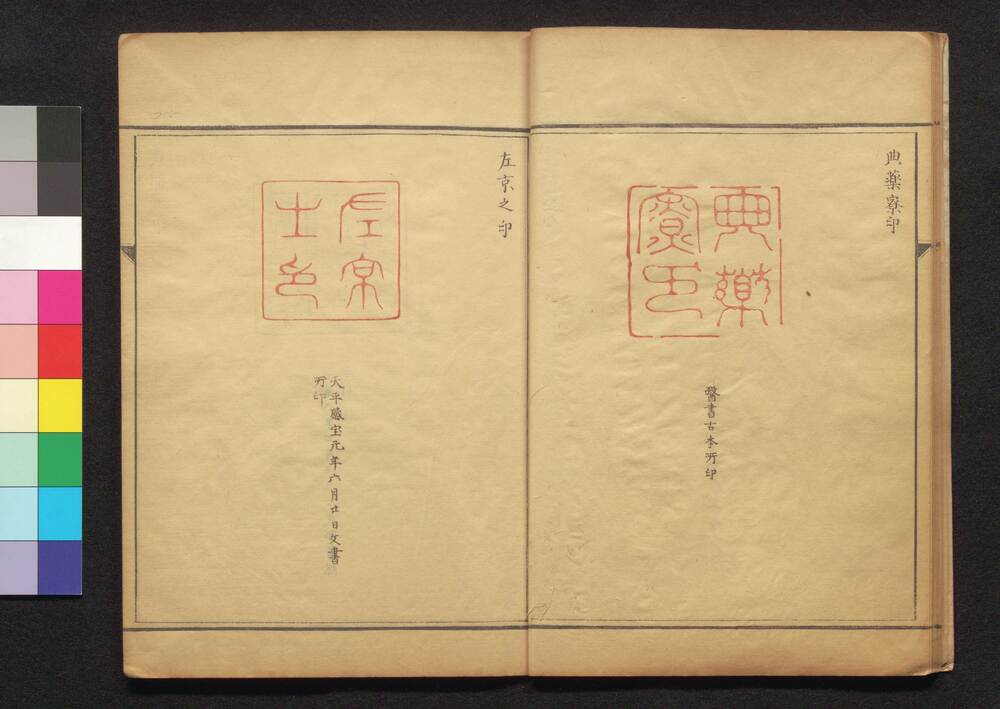 典藥寮印
典藥
寮印
醫書古本所印
左京之印
左京
之印
天平感宝元年六月廿日文書
所印